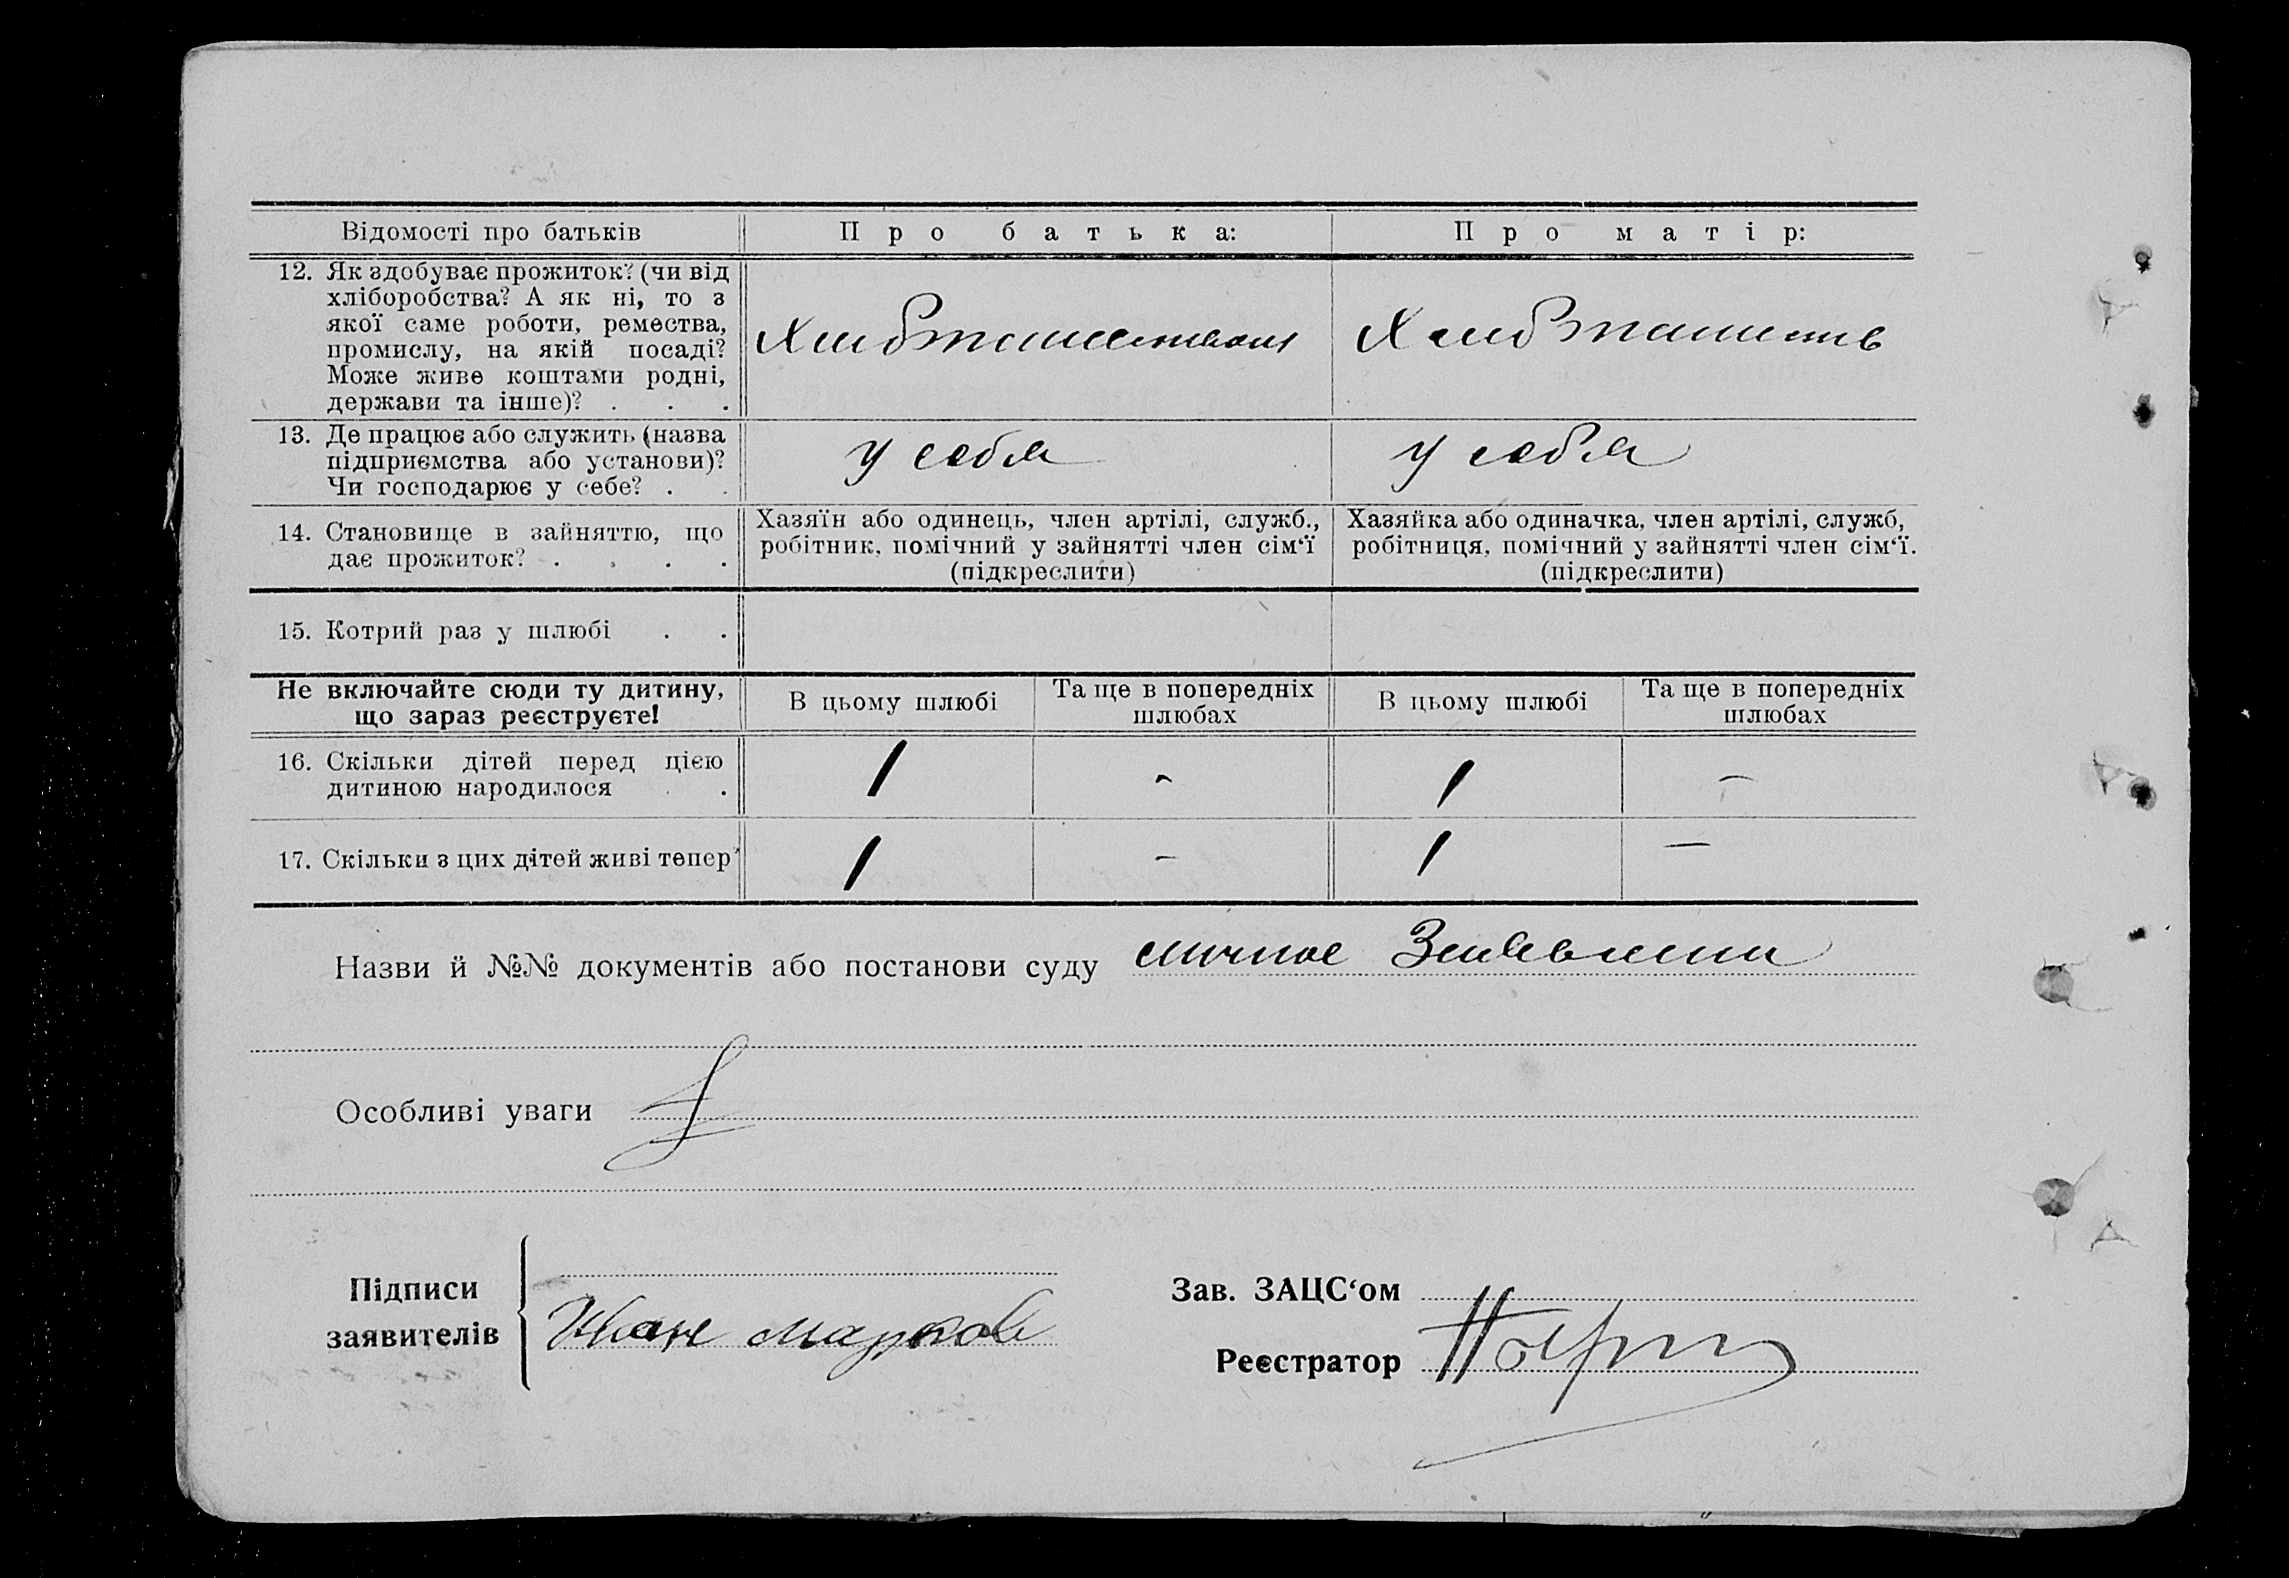 Відомості про батьків
Про батька:
Про матір:
12. Як здобуває прожиток? (чи від
хліборобства? А як ні, то з
якої саме роботи, ремества,
промислу, на якій посаді?
Може живе коштами родні,
держави та інше)? . . .
Хлибопашеством
Хлибопашеств
13. Де працює або служить (назва
підприємства або установи)?
Чи господарює у себе? . .
у себя
у себя
14. Становище в зайняттю, що
дає прожиток? . . . .
Хазяїн або одинець, член артілі, служб.,
робітник, помічний у зайнятті член сім‘ї
(підкреслити)
Хазяйка або одиначка, член артілі, служб,
робітниця, помічний у зайнятті член сім‘ї.
(підкреслити)
15. Котрий раз у шлюбі . .
Не включайте сюди ту дитину,
що зараз реєструєте!
В цьому шлюбі
Та ще в попередніх
шлюбах
В цьому шлюбі
Та ще в попередніх
шлюбах
16. Скільки дітей перед цією
дитиною народилося . .
1 - 1 -
17. Скільки з цих дітей живі тепер
1 - 1 -
Назви й №№ документів або постанови суду личное
Особливі уваги
Підписи
заявителів
Иван Марков
Зав. ЗАЦС‘ом
Реєстратор